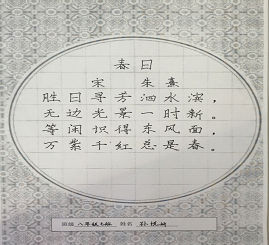 春日
宋 朱熹
胜日寻芳泗水滨，
无边光景一时新。
等闲识得东风面，
万紫千红总是春。
班级 八年级七班 姓名 孙